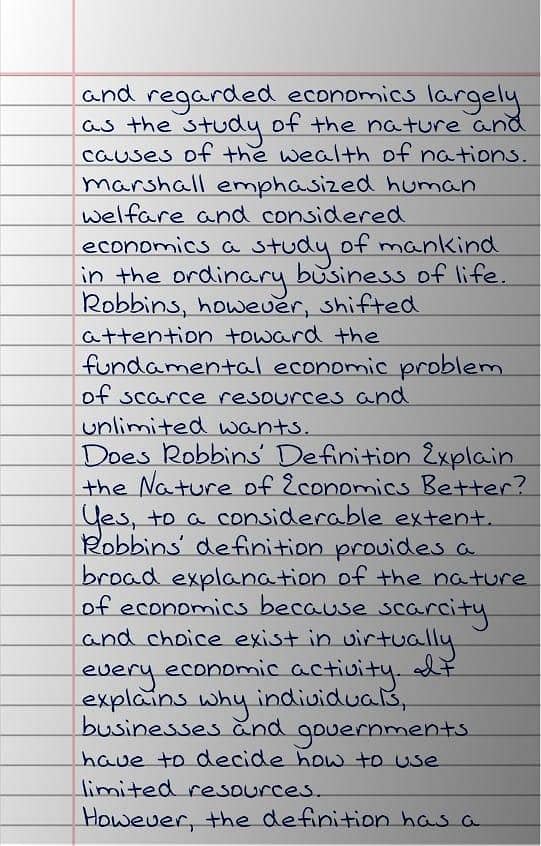 and regarded economics largely
as the study of the nature and
causes of the wealth of nations.
Marshall emphasized human
welfare and considered
economics a study of mankind
in the ordinary business of life.
Robbins, however, shifted
attention toward the
fundamental economic problem
of scarce resources and
unlimited wants.
Does Robbins' Definition Explain
the Nature of Economics Better?
Yes, to a considerable extent.
Robbins' definition provides a
broad explanation of the nature
of economics because scarcity
and choice exist in virtually
every economic activity. It
explains why individuals,
businesses and governments
have to decide how to use
limited resources.
However, the definition has a